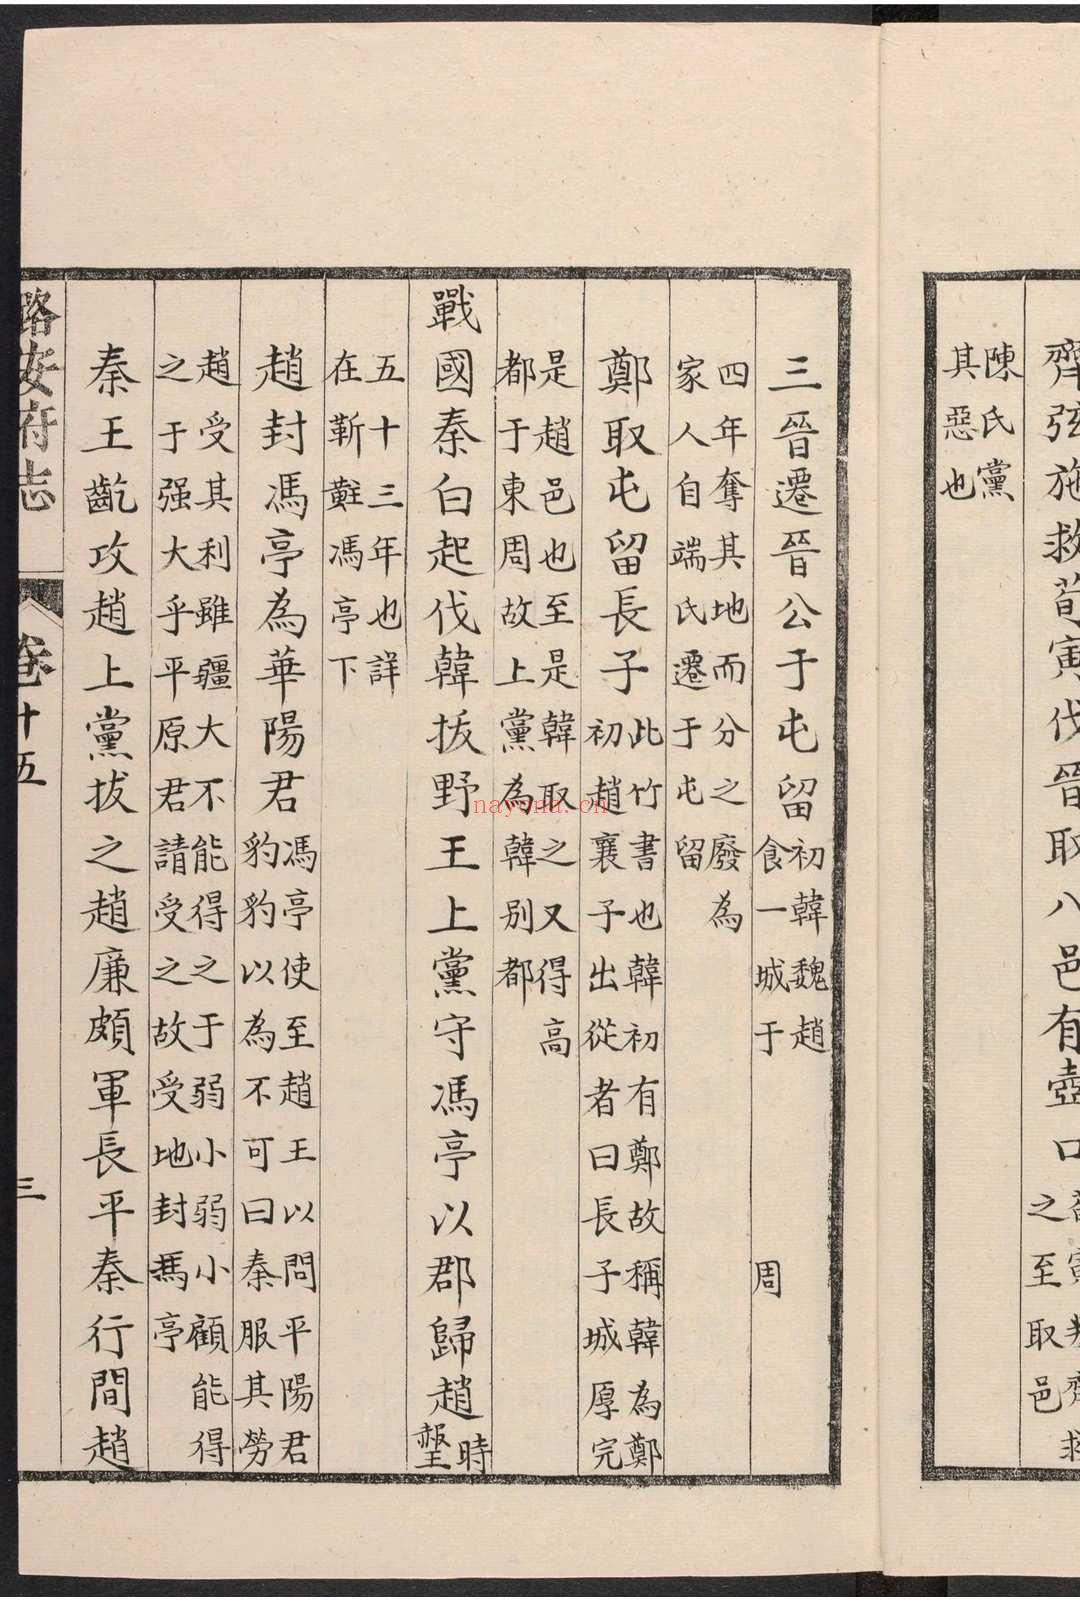 齊弦施救荀寅伐晉取八邑有壺口
之至取邑
陳氏黨
其惡也
三晉遷晉公于屯留
初韓魏趙
食一城于
周
四年奪其地而分之廢為
家人自端氏遷于屯留
鄭取屯留長子
此竹書也韓初有鄭故稱韓為鄭
初趙襄子出從者曰長子城厚完
是趙邑也至是韓取之又得高
都于東周故上黨為韓別都
戰國秦白起伐韓拔野王上黨守馮亭以郡歸趙
時
赧王
五十三年也詳
在靳黈馮亭下
趙封馮亭為華陽君
馮亭使至趙王以問平陽君
豹豹以為不可曰秦服其勞
趙受其利雖疆大不能得之于弱小弱小顧能得
之于强大乎平原君請受之故受地封馮亭
秦王齕攻趙上黨拔之趙廉頗軍長平秦行間趙
潞安府志
卷十五
三
nayona.cn